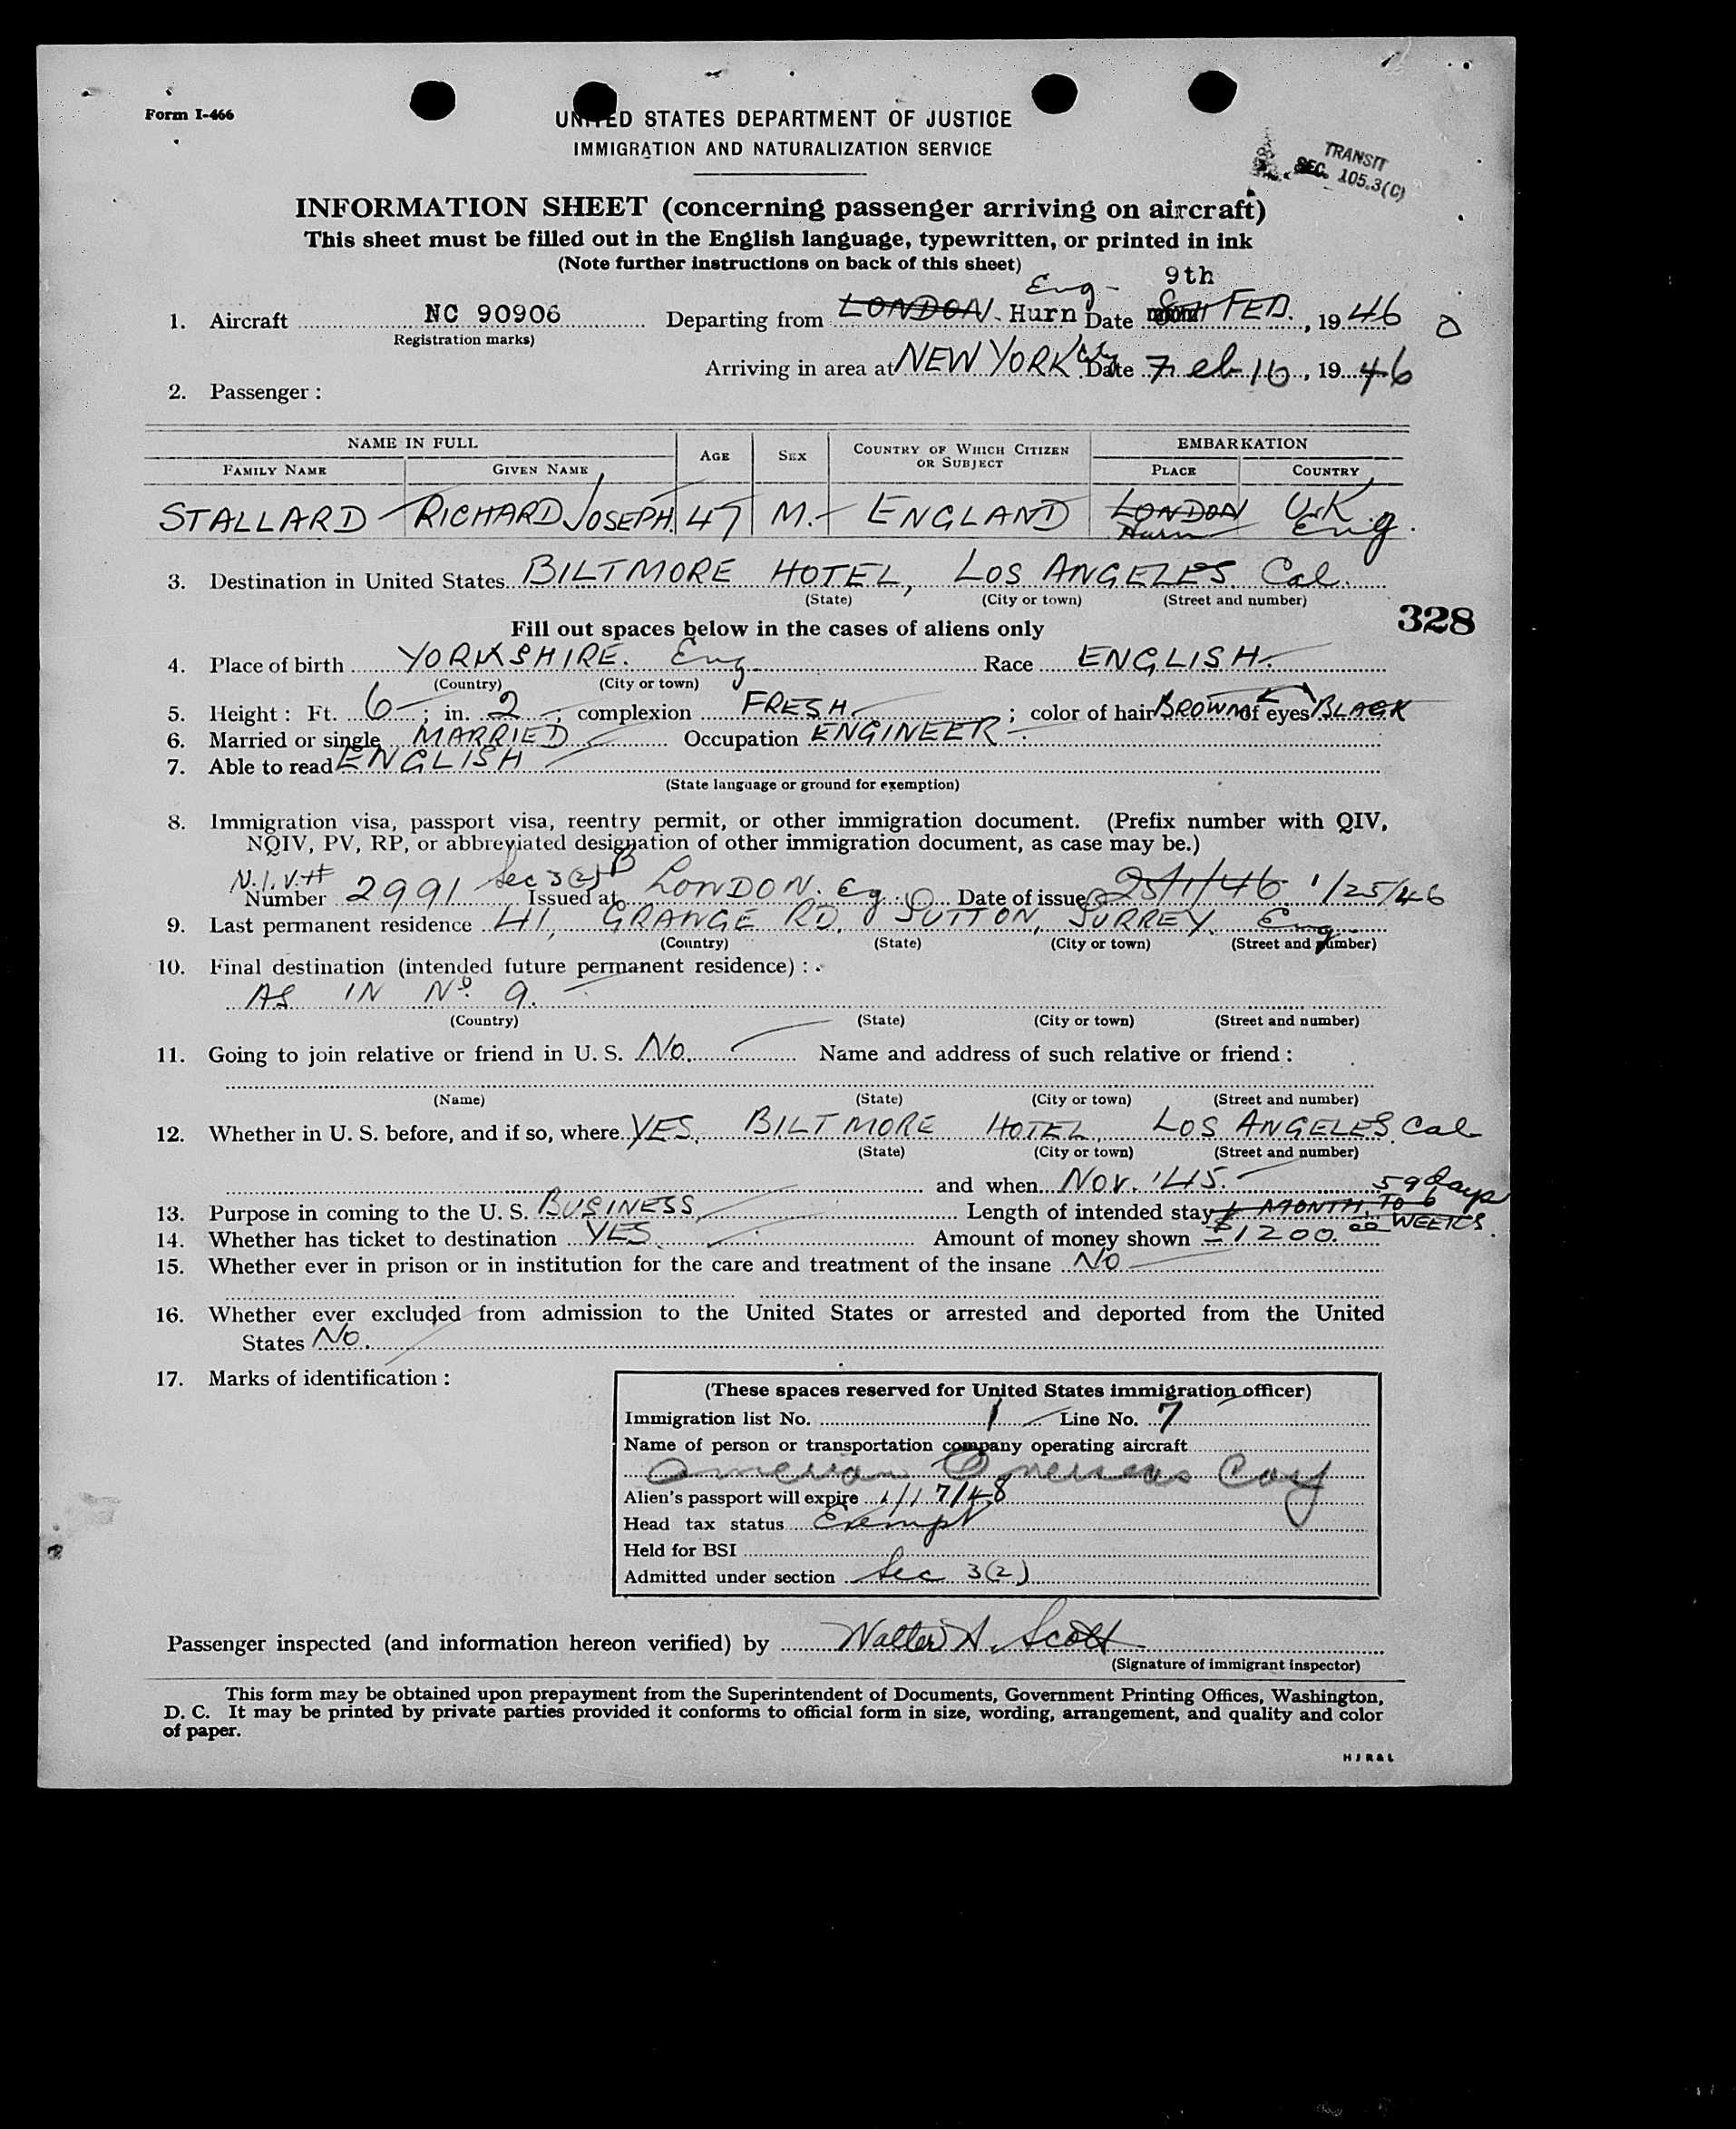 Form I-466
UNITED STATES DEPARTMENT OF JUSTICE
IMMIGRATION AND NATURALIZATION SERVICE
TRANSIT
SEC. 105.3(C)
INFORMATION SHEET (concerning passenger arriving on aircraft)
This sheet must be filled out in the English language, typewritten, or printed in ink
(Note further instructions on back of this sheet)
Eng- 9th
1. Aircraft NC 90906 Departing from LONDON. Hurn Date FEB., 1946
(Registration marks)
Arriving in area at NEW YORK City Date Feb 10, 1946
2. Passenger :
NAME IN FULL AGE SEX COUNTRY OF WHICH CITIZEN OR SUBJECT EMBARKATION
FAMILY NAME GIVEN NAME PLACE COUNTRY
STALLARD RICHARD JOSEPH. 47 M. ENGLAND LONDON U.K.
Hurn Eng.
3. Destination in United States BILTMORE HOTEL, LOS ANGELES Cal.
(State) (City or town) (Street and number)
328
Fill out spaces below in the cases of aliens only
4. Place of birth YORKSHIRE. Eng. Race ENGLISH.
(Country) (City or town)
5. Height : Ft. 6 ; in. 2 ; complexion FRESH. ; color of hair BROWN of eyes BLACK
6. Married or single MARRIED Occupation ENGINEER.
7. Able to read ENGLISH
(State language or ground for exemption)
8. Immigration visa, passport visa, reentry permit, or other immigration document. (Prefix number with QIV,
NQIV, PV, RP, or abbreviated designation of other immigration document, as case may be.)
N.I.V.#
Number 2991 Sec 3(2) B Issued at LONDON. Eg. Date of issue 25/1/46 1/25/46
9. Last permanent residence 41, GRANGE RD, SUTTON, SURREY. Eng.
(Country) (State) (City or town) (Street and number)
10. Final destination (intended future permanent residence) :
AS IN No. 9.
(Country) (State) (City or town) (Street and number)
11. Going to join relative or friend in U. S. No. Name and address of such relative or friend :
(Name) (State) (City or town) (Street and number)
12. Whether in U. S. before, and if so, where YES, BILTMORE HOTEL, LOS ANGELES. Cal
(State) (City or town) (Street and number)
and when NOV. '45. 59 days
13. Purpose in coming to the U. S. BUSINESS Length of intended stay MONTH, TO 6
WEEKS.
14. Whether has ticket to destination YES. Amount of money shown $1200.00
15. Whether ever in prison or in institution for the care and treatment of the insane NO
16. Whether ever excluded from admission to the United States or arrested and deported from the United
States No.
17. Marks of identification :
(These spaces reserved for United States immigration officer)
Immigration list No. 1 Line No. 7
Name of person or transportation company operating aircraft
American Overseas
Alien's passport will expire 1/17/48
Head tax status Exempt
Held for BSI
Admitted under section Sec 3(2)
Passenger inspected (and information hereon verified) by Walter A. Scott
(Signature of immigrant inspector)
This form may be obtained upon prepayment from the Superintendent of Documents, Government Printing Offices, Washington,
D. C. It may be printed by private parties provided it conforms to official form in size, wording, arrangement, and quality and color
of paper.
H J R & L